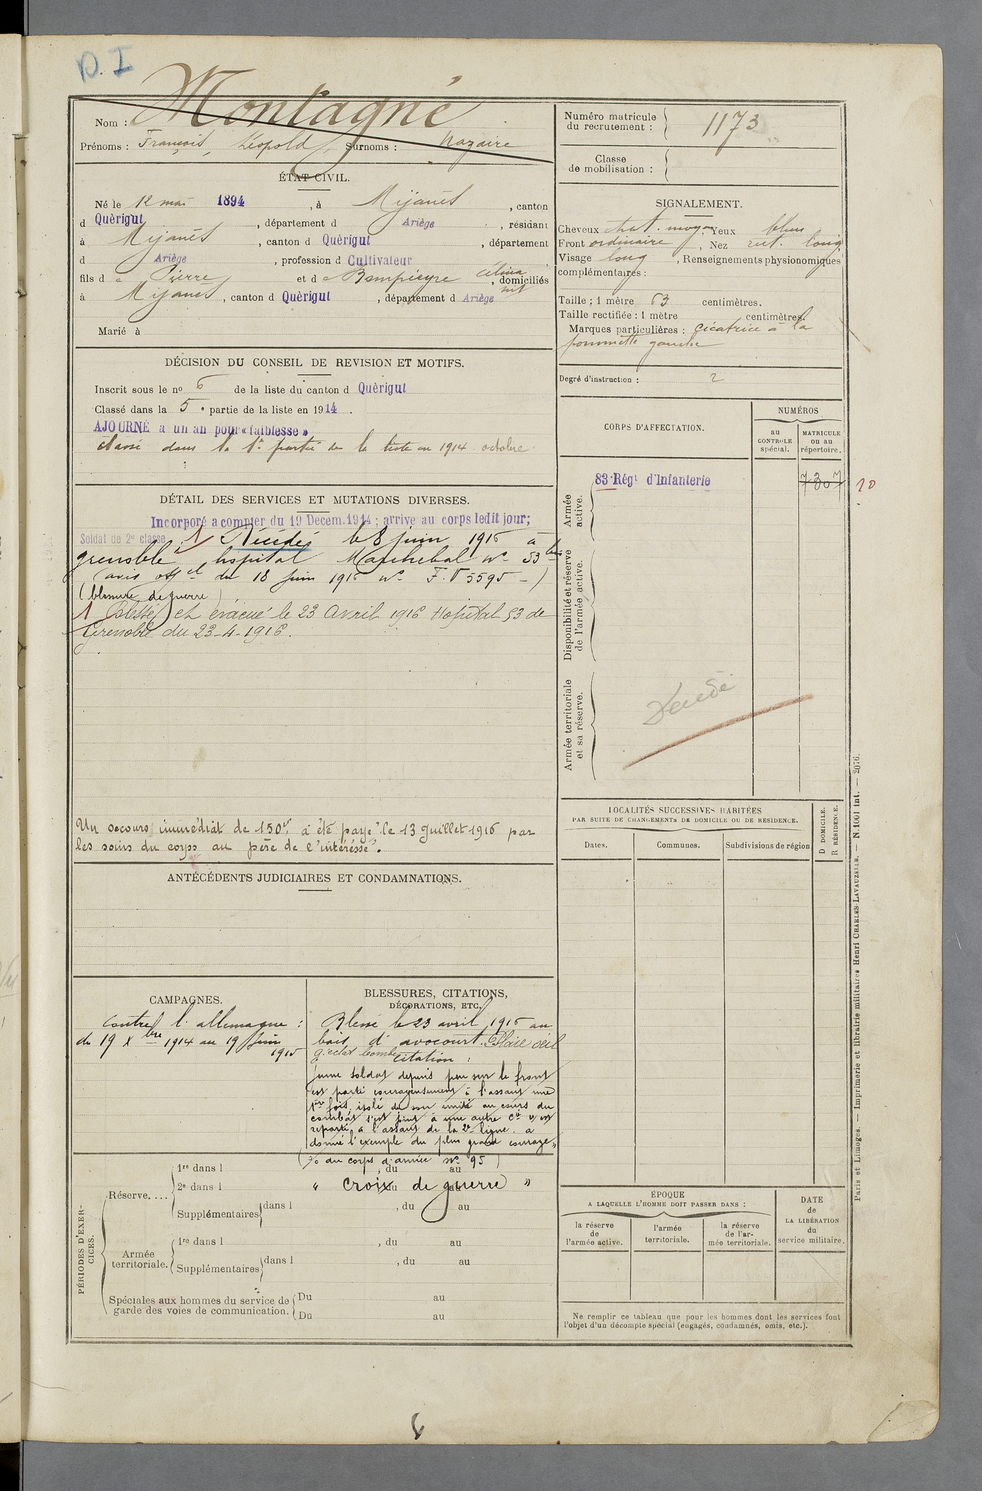 D. I
Nom : Montagné
Prénoms : François, Léopold, Surnoms : Nazaire
ÉTAT CIVIL.
Né le 12 mai 1894, à Mijanès, canton
d Quèrigut, département d Ariège, résidant
à Mijanès, canton d Quèrigut, département
d Ariège, profession d Cultivateur
fils d e Pierre et d e Bompieyre Célina, domiciliés
à Mijanès, canton d Quèrigut, département d Ariège
Marié à
DÉCISION DU CONSEIL DE REVISION ET MOTIFS.
Inscrit sous le nº 6 de la liste du canton d Quèrigut
Classé dans la 5e partie de la liste en 1914.
AJOURNÉ à un an pour « faiblesse »
Classé dans la 1e partie de la liste en 1914 octobre
DÉTAIL DES SERVICES ET MUTATIONS DIVERSES.
Incorporé a compter du 19 Decem. 1914 ; arrivé au corps ledit jour;
Soldat de 2e classe. 1 Décédé le 8 juin 1916 à
grenoble hopital Maréchal nº 53 bis
(avis offel du 18 juin 1916 nº F. D 5595 -)
(blessure de guerre)
1 (blessé) et évacué le 23 Avril 1916 Hopital 53 de
Grenoble du 23-4-1916.
Un secours immédiat de 150fr a été payé le 13 Juillet 1916 par
les soins du corps au père de l'intéréssé.
ANTÉCÉDENTS JUDICIAIRES ET CONDAMNATIONS.
CAMPAGNES.
Contre l'allemagne :
du 19 Xbre 1914 au 19 Juin
1915
BLESSURES, CITATIONS,
DÉCORATIONS, ETC.
Blessé le 23 avril 1916 au
bois d'avocourt. Plaie œil
g. eclat bombe Citation :
jeune soldat depuis peu sur le front
est parti courageusement à l'assaut une
1ère fois, isolé de son unité au cours du
combat s'est joint à une autre Cie et est
reparti à l'assaut de la 2e ligne. a
donné l'exemple du plus grand courage »
(% du corps d'armée nº 95)
« croix de guerre »
PÉRIODES D'EXERCICES.
Réserve....
1re dans l , du au
2e dans l , du au
Supplémentaires dans l , du au
Armée territoriale.
1re dans l , du au
Supplémentaires dans l , du au
Spéciales aux hommes du service de garde des voies de communication.
Du au
Du au
Numéro matricule du recrutement : 1173
Classe de mobilisation :
SIGNALEMENT.
Cheveux chat. moyen, Yeux bleus
Front ordinaire, Nez rect. long
Visage long, Renseignements physionomiques
complémentaires :
Taille : 1 mètre 63 centimètres.
Taille rectifiée : 1 mètre centimètres.
Marques particulières : Cicatrice à la
pommette gauche
Degré d'instruction : 2
CORPS D'AFFECTATION.
NUMÉROS
au CONTRÔLE spécial.
MATRICULE ou au répertoire.
Armée active.
83 Régt d'Infanterie
7307
10
Disponibilité et réserve de l'armée active.
Armée territoriale et sa réserve.
Décédé
LOCALITÉS SUCCESSIVES HABITÉES
PAR SUITE DE CHANGEMENTS DE DOMICILE OU DE RESIDENCE.
Dates. Communes. Subdivisions de région
D DOMICILE.
R RÉSIDENCE.
ÉPOQUE
A LAQUELLE L'HOMME DOIT PASSER DANS :
la réserve de l'armée active.
l'armée territoriale.
la réserve de l'armée territoriale.
DATE de LA LIBÉRATION du service militaire.
Ne remplir ce tableau que pour les hommes dont les services font
l'objet d'un décompte spécial (engagés, condamnés, omis, etc.).
Paris et Limoges. — Imprimerie et librairie militaires Henri CHARLES-LAVAUZELLE. — N. 1001 int. — 2076.